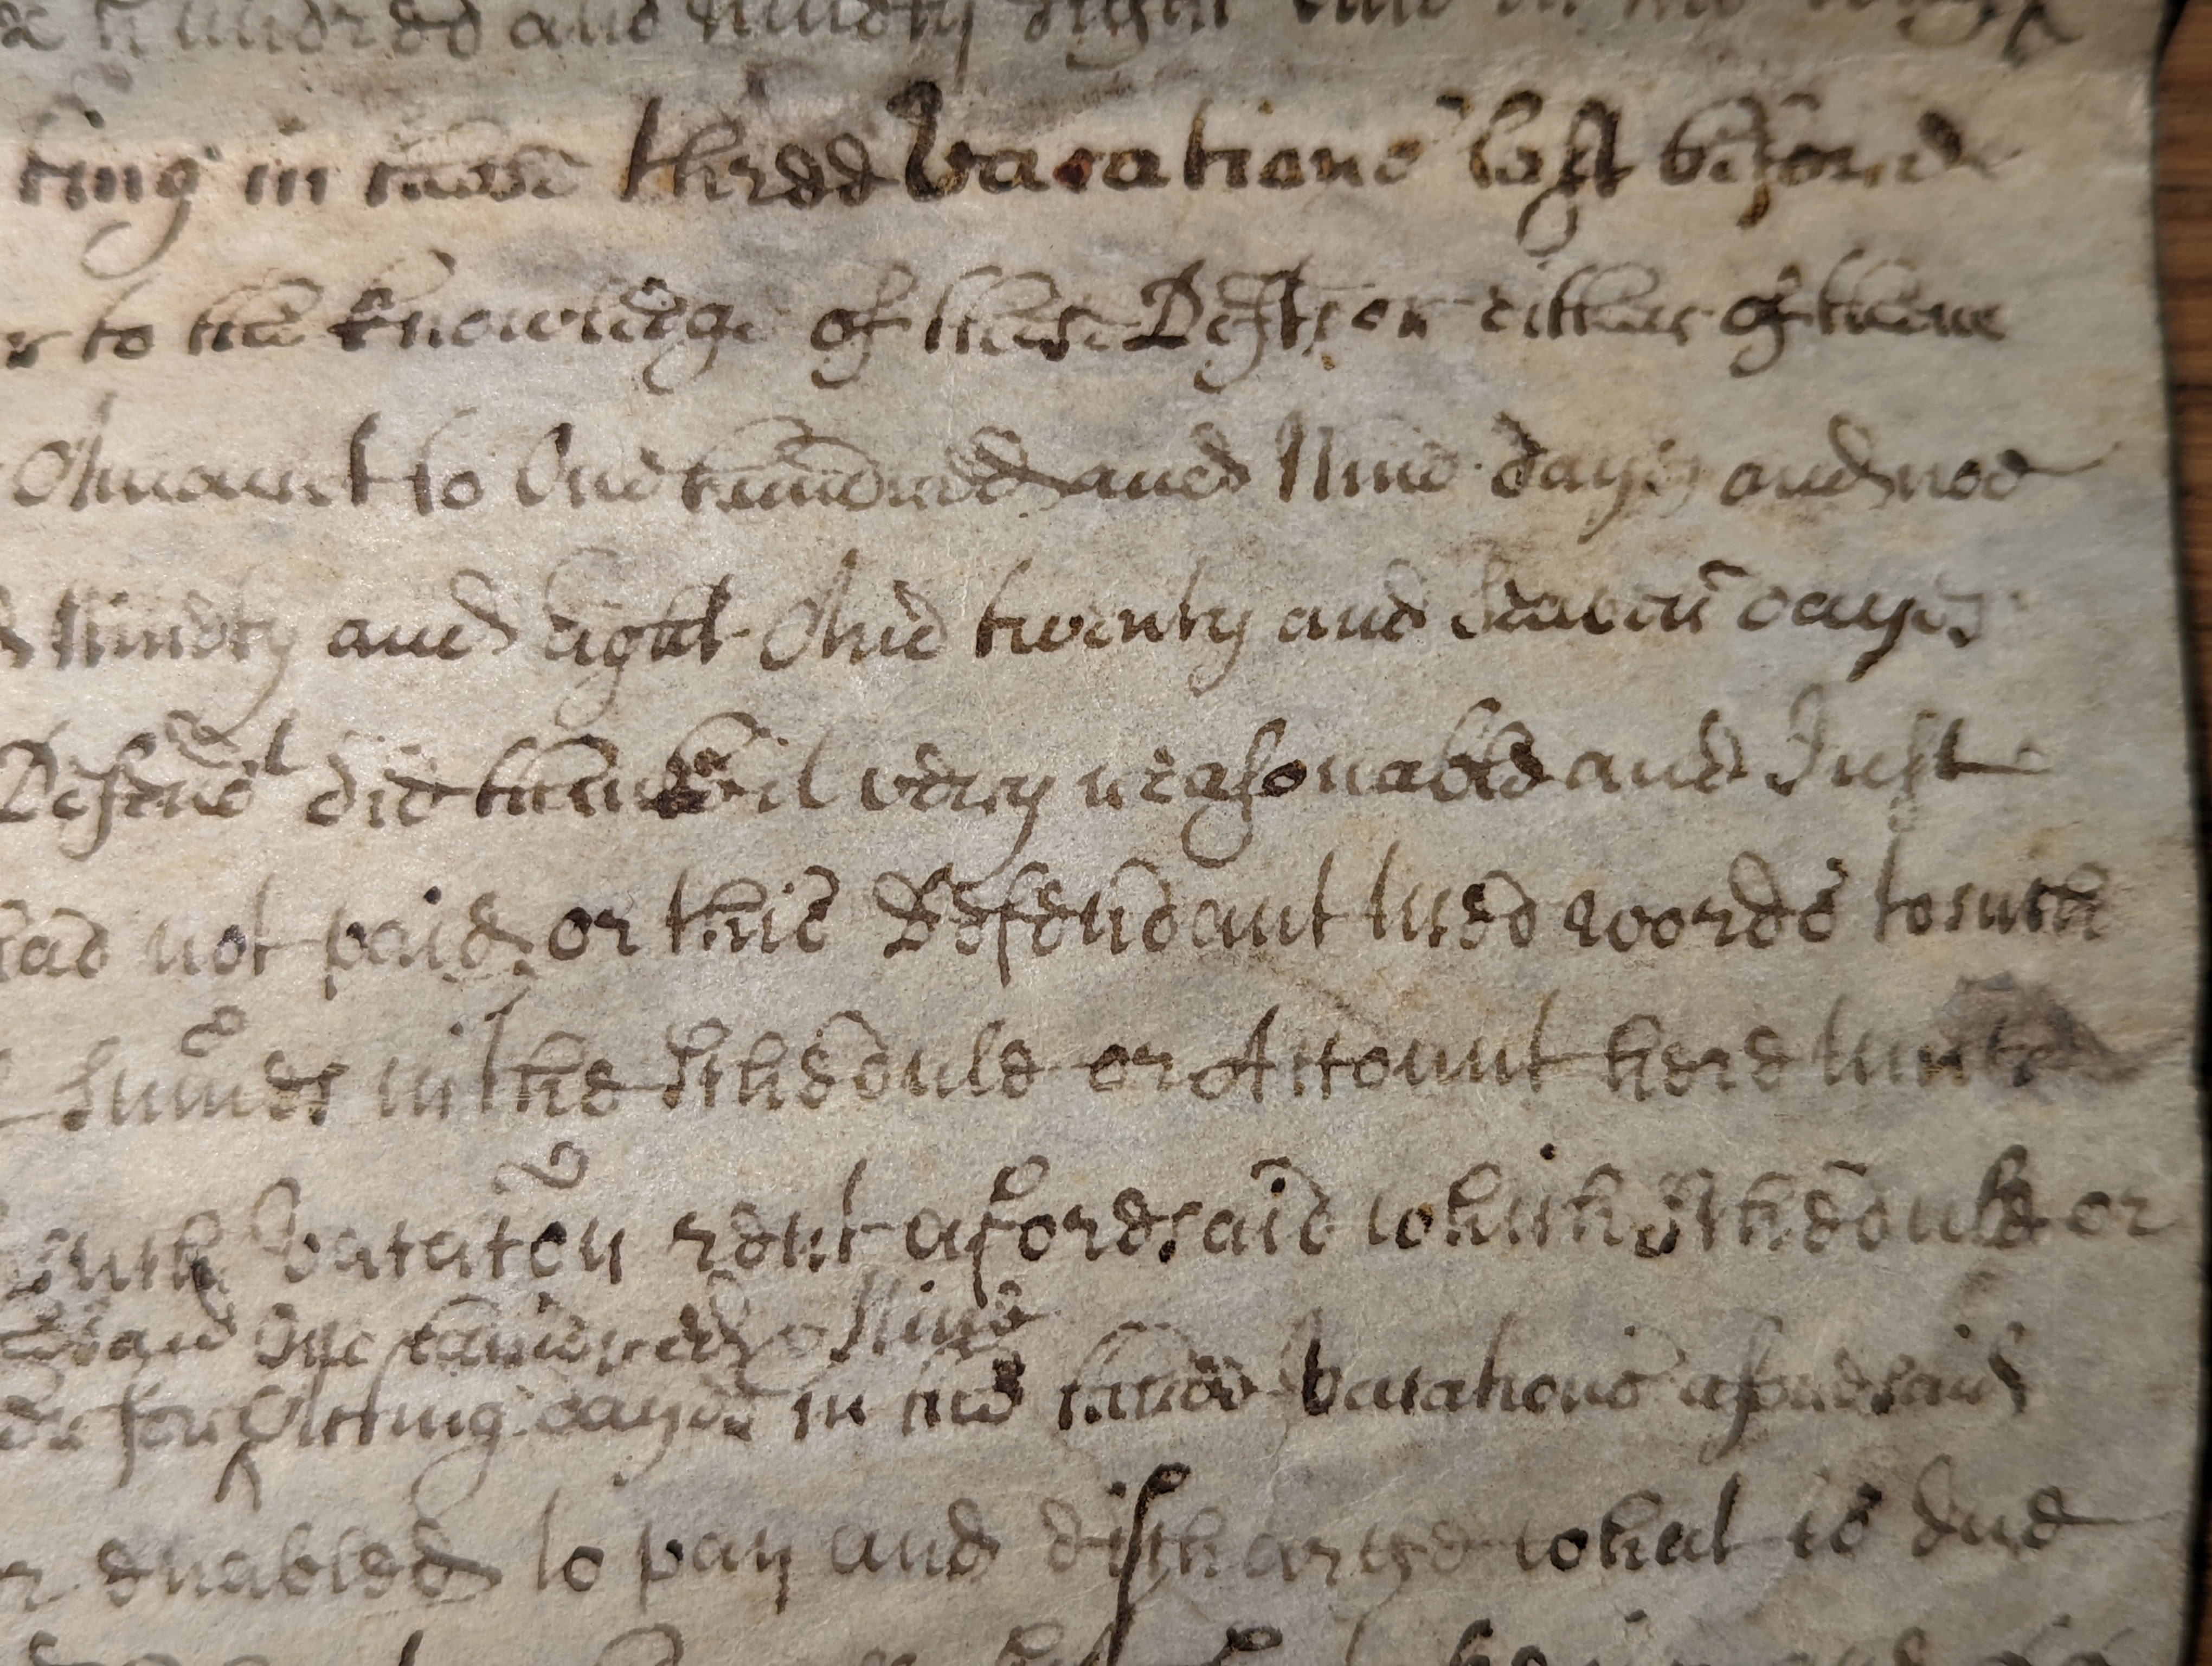 hundred and Ninety Eight and in the
ting in those three Vacations last before
to the knowledge of these Defts or either of them
Amount to One hundred and Nine dayes and noe
Ninety and Eight And twenty and Seaven dayes
Defend^t did think it very reasonable and Just
had not paid or this Defendant used words to such
Sumes in the Schedule or Account hereunto
such Vacacon rent aforesaid which Schedule or
and One hundred & Nine
for Acting dayes in the three Vacations aforesaid
enabled to pay and discharge what is due